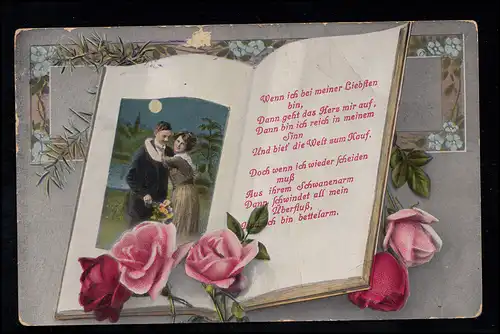 Wenn ich bei meiner Liebsten
bin,
Dann geht das Herz mir auf,
Dann bin ich reich in meinem
Sinn
Und biet' die Welt zum Kauf.
Doch wenn ich wieder scheiden
muß
Aus ihrem Schwanenarm
Dann schwindet all mein
Überfluß,
ich bin bettelarm.